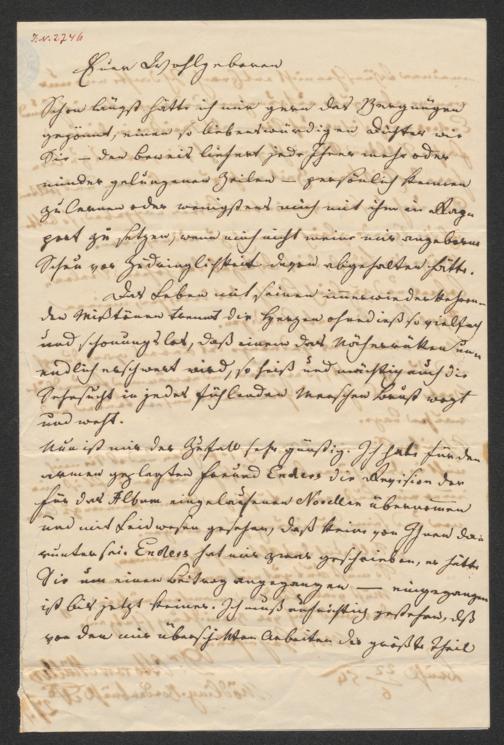 I.N. 2746
Euer Wohlgeboren
Schon längst hätte ich mir gern das Vergnügen
gegönnt, einen so liebenswürdigen Dichter wie
Sie — den beweis liefert jede Ihrer mehr oder
minder gelungenen Zeilen — persönlich kennen
zu lernen oder wenigstens mich mit ihm in Rap-
port zu setzen, wenn mich nicht meine mir angeborne
Scheu vor Zudringlichkeit davon abgehalten hätte.
Das Leben mit seinen immerwiederkehren-
den Mißtönen trennt die Herzen ohnedieß so vielfach
und schonungslos, daß einem das Näherrücken un-
endlich erschwert wird, so heiß und mächtig auch die
Sehnsucht in jedes fühlenden Menschen Brust wogt
und weht.
Nun ist mir der Zufall sehr günstig. Ich habe für den
armen geplagten Freund Enders die Revision der
für das Album eingelaufenen Novellen übernommen
und mit Leidwesen gesehen, daß keine von Ihnen da-
runter sei. Enders hat mir zwar geschrieben, er hätte
Sie um einen Beitrag angegangen — eingegangen
ist bis jetzt keiner. Ich muß aufrichtig gestehen, daß
von den mir überschickten Arbeiten der größte Theil